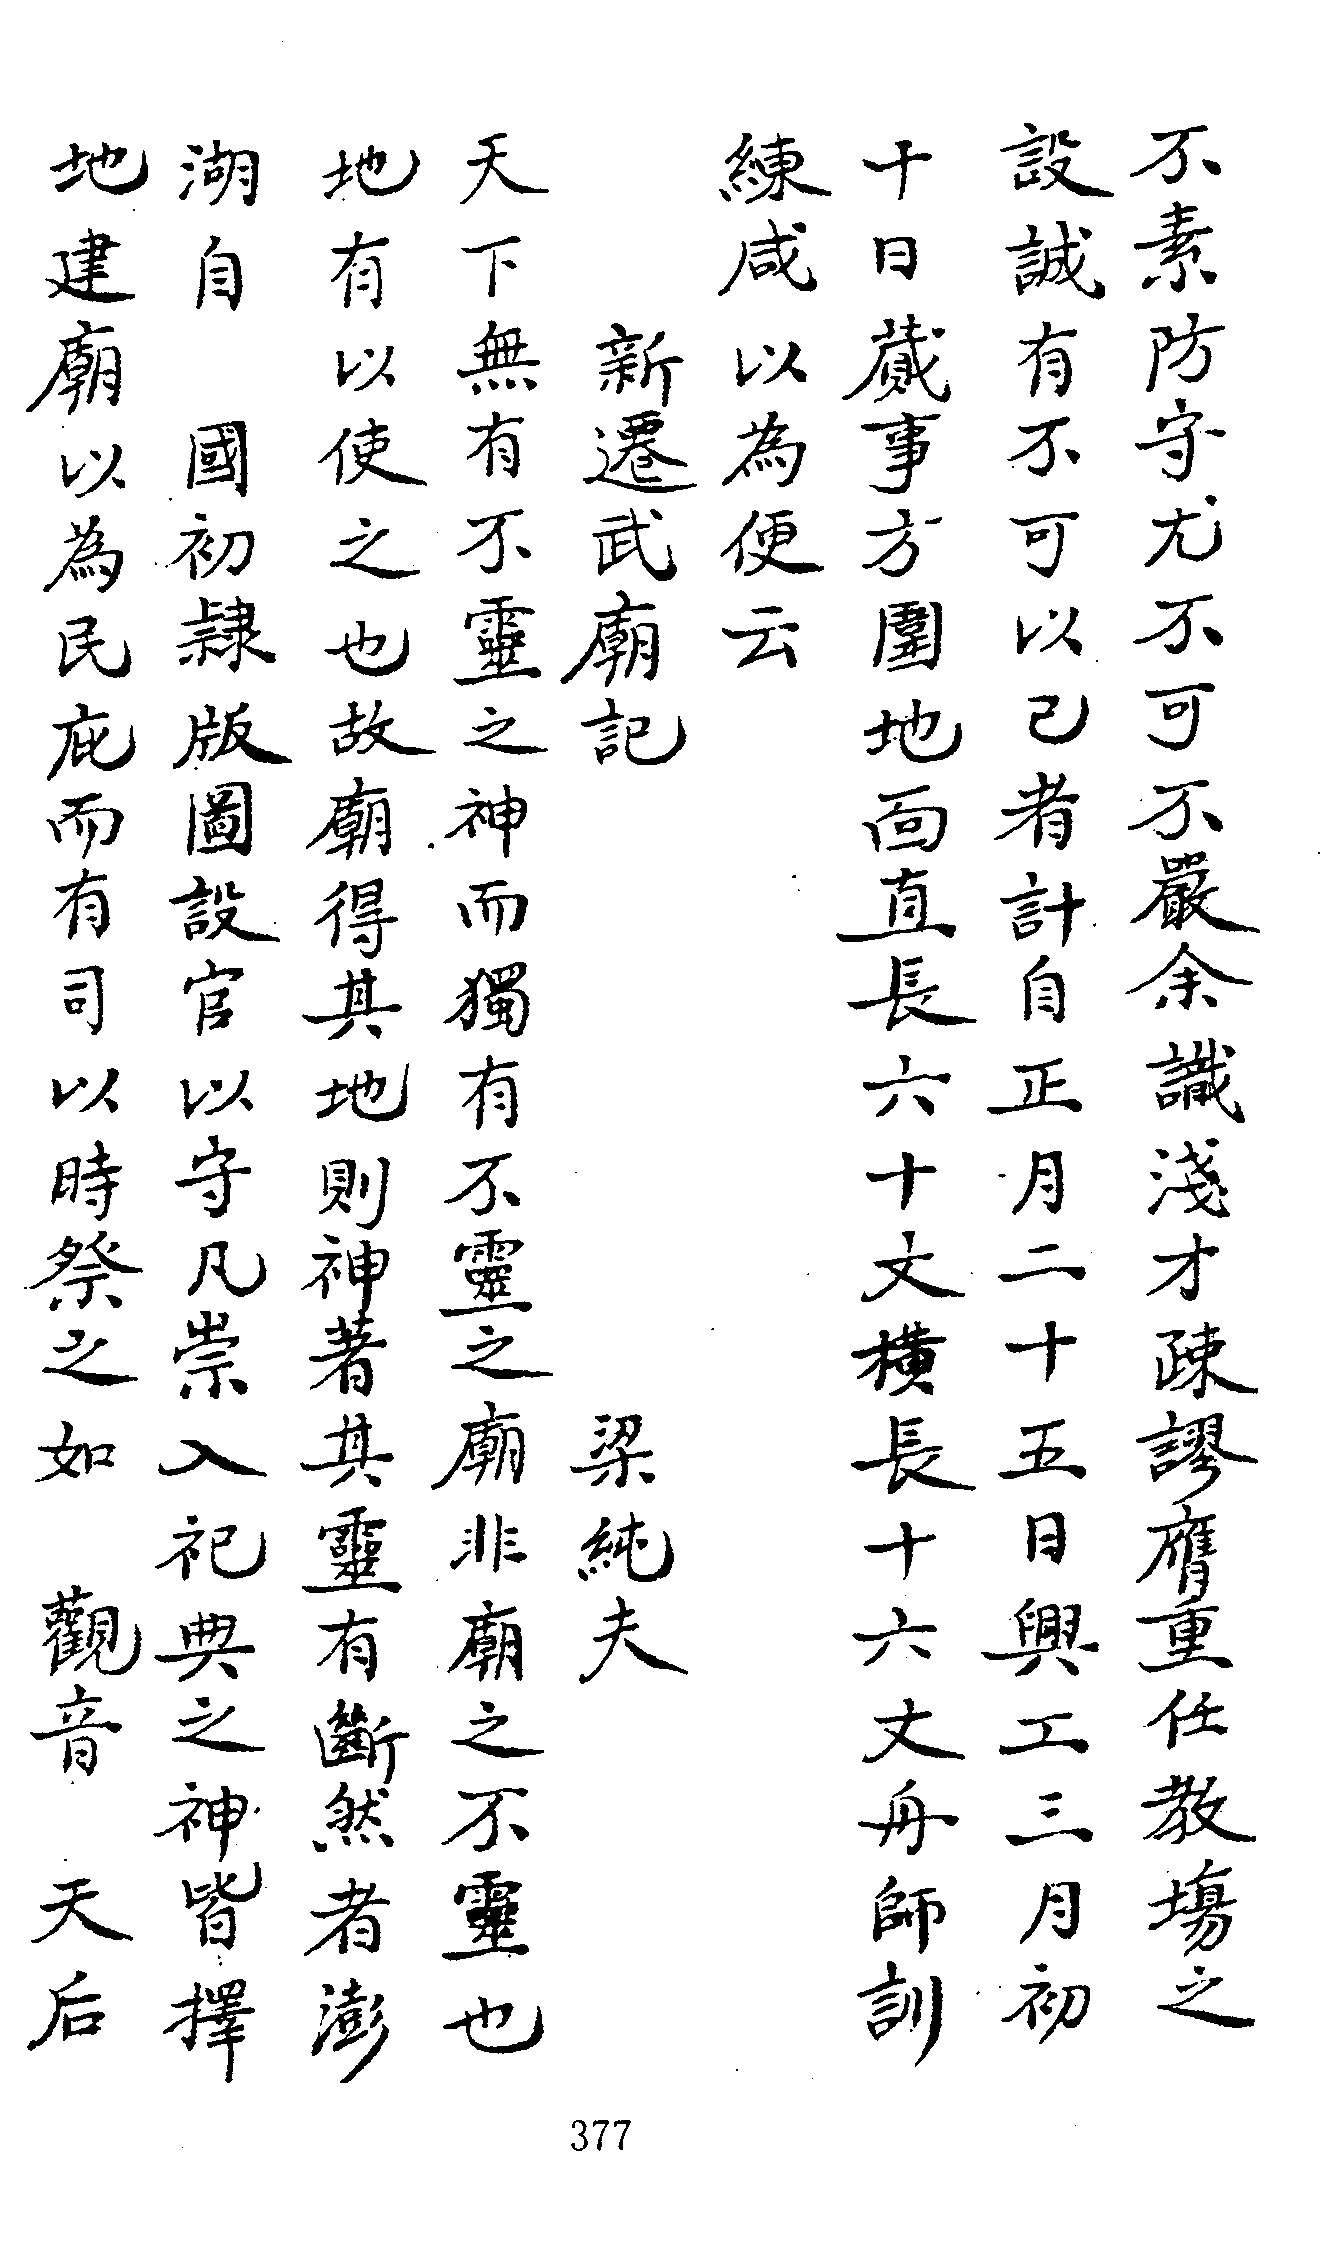 不素防守尤不可不嚴余識淺才疎謬膺重任教塲之
設誠有不可以已者計自正月二十五日興工三月初
十日蕆事方圍地面直長六十丈橫長十六丈舟師訓
練咸以為便云
新遷武廟記　梁純夫
天下無有不靈之神而獨有不靈之廟非廟之不靈也
地有以使之也故廟得其地則神著其靈有斷然者澎
湖自　國初隸版圖設官以守凡崇入祀典之神皆擇
地建廟以為民庇而有司以時祭之如　觀音　天后
377